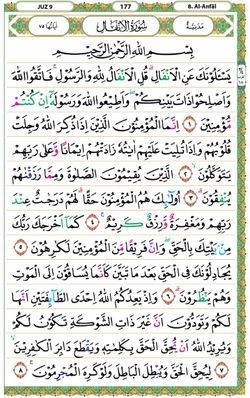 JUZ 9 177 8. Al-Anfāl
مَدَنِيَّة سُورَةُ الْاَنْفَالِ اٰيَاتُهَا ٧٥
بِسْمِ اللّٰهِ الرَّحْمٰنِ الرَّحِيْمِ
يَسْـَٔلُوْنَكَ عَنِ الْاَنْفَالِ قُلِ الْاَنْفَالُ لِلّٰهِ وَالرَّسُوْلِ فَاتَّقُوا اللّٰهَ
وَاَصْلِحُوْا ذَاتَ بَيْنِكُمْ وَاَطِيْعُوا اللّٰهَ وَرَسُوْلَهٗٓ اِنْ كُنْتُمْ
مُّؤْمِنِيْنَ ١ اِنَّمَا الْمُؤْمِنُوْنَ الَّذِيْنَ اِذَا ذُكِرَ اللّٰهُ وَجِلَتْ
قُلُوْبُهُمْ وَاِذَا تُلِيَتْ عَلَيْهِمْ اٰيٰتُهٗ زَادَتْهُمْ اِيْمَانًا وَّعَلٰى رَبِّهِمْ
يَتَوَكَّلُوْنَ ٢ الَّذِيْنَ يُقِيْمُوْنَ الصَّلٰوةَ وَمِمَّا رَزَقْنٰهُمْ
يُنْفِقُوْنَ ٣ اُولٰٓئِكَ هُمُ الْمُؤْمِنُوْنَ حَقًّا لَهُمْ دَرَجٰتٌ عِنْدَ
رَبِّهِمْ وَمَغْفِرَةٌ وَّرِزْقٌ كَرِيْمٌ ٤ كَمَآ اَخْرَجَكَ رَبُّكَ
مِنْۢ بَيْتِكَ بِالْحَقِّ وَاِنَّ فَرِيْقًا مِّنَ الْمُؤْمِنِيْنَ لَكٰرِهُوْنَ ٥
يُجَادِلُوْنَكَ فِى الْحَقِّ بَعْدَ مَا تَبَيَّنَ كَاَنَّمَا يُسَاقُوْنَ اِلَى الْمَوْتِ
وَهُمْ يَنْظُرُوْنَ ٦ وَاِذْ يَعِدُكُمُ اللّٰهُ اِحْدَى الطَّآئِفَتَيْنِ اَنَّهَا
لَكُمْ وَتَوَدُّوْنَ اَنَّ غَيْرَ ذَاتِ الشَّوْكَةِ تَكُوْنُ لَكُمْ
وَيُرِيْدُ اللّٰهُ اَنْ يُّحِقَّ الْحَقَّ بِكَلِمٰتِهٖ وَيَقْطَعَ دَابِرَ الْكٰفِرِيْنَ ٧
لِيُحِقَّ الْحَقَّ وَيُبْطِلَ الْبَاطِلَ وَلَوْ كَرِهَ الْمُجْرِمُوْنَ ٨